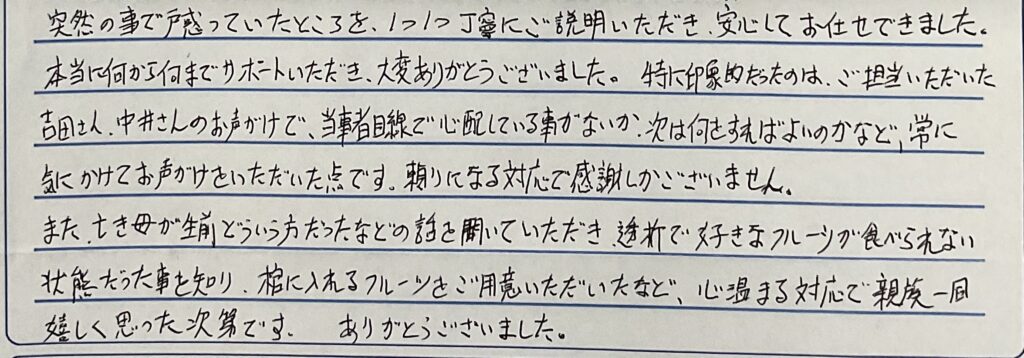 突然の事で戸惑っていたところを、1つ1つ丁寧にご説明いただき、安心してお任せできました。
本当に何から何までサポートいただき、大変ありがとうございました。 特に印象的だったのは、ご担当いただいた
吉田さん、中井さんのお声がけで、当事者目線で心配している事がないか、次は何をすればよいのかなど、常に
気にかけてお声がけをいただいた点です。頼りになる対応で感謝しかございません。
また、亡き母が生前どういう方だったなどの話を聞いていただき、透析で好きなフルーツが食べられない
状態だった事を知り、棺に入れるフルーツをご用意いただいたなど、心温まる対応で親族一同
嬉しく思った次第です。 ありがとうございました。